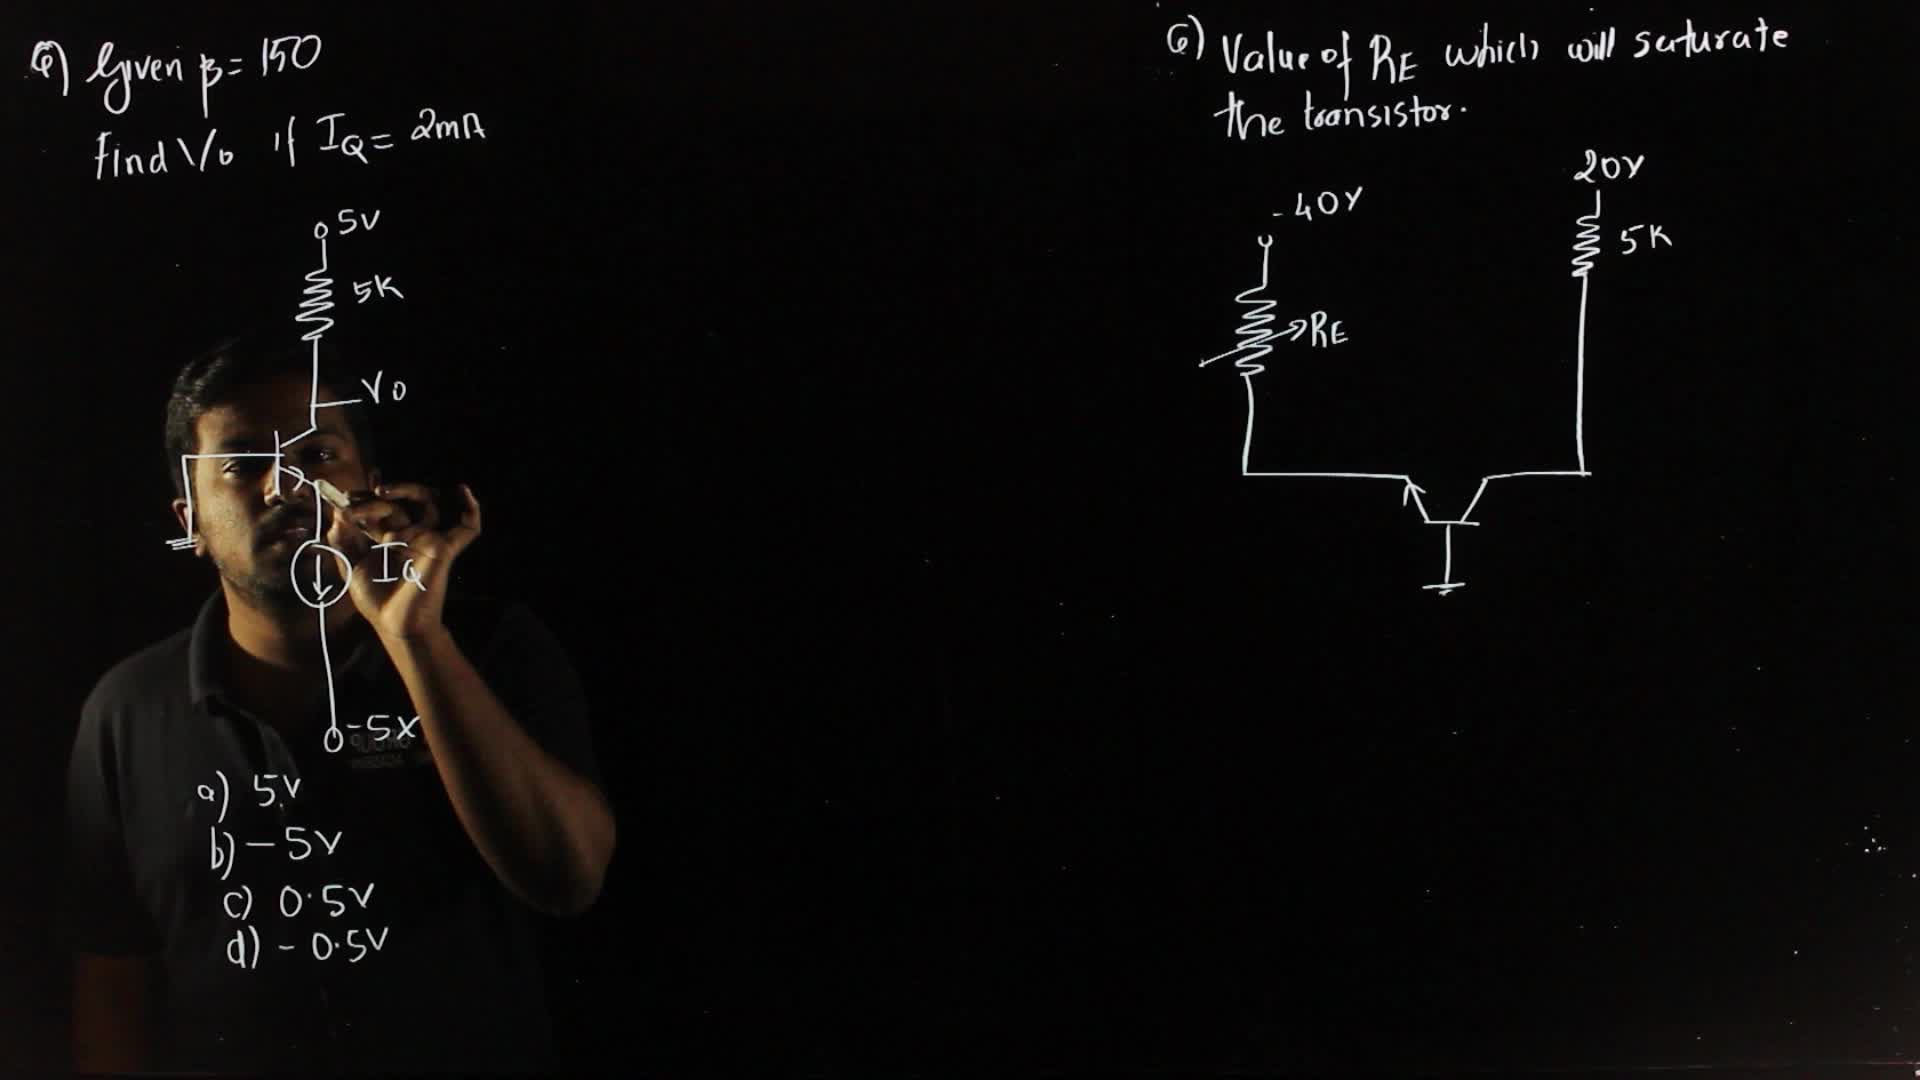 Q) Given β = 150
Find V0 if IQ = 2mA
5V
5K
V0
IQ
-5V
a) 5V
b) -5V
c) 0.5V
d) - 0.5V
Q) Value of RE which will saturate
the transistor.
- 40V
RE
20V
5K